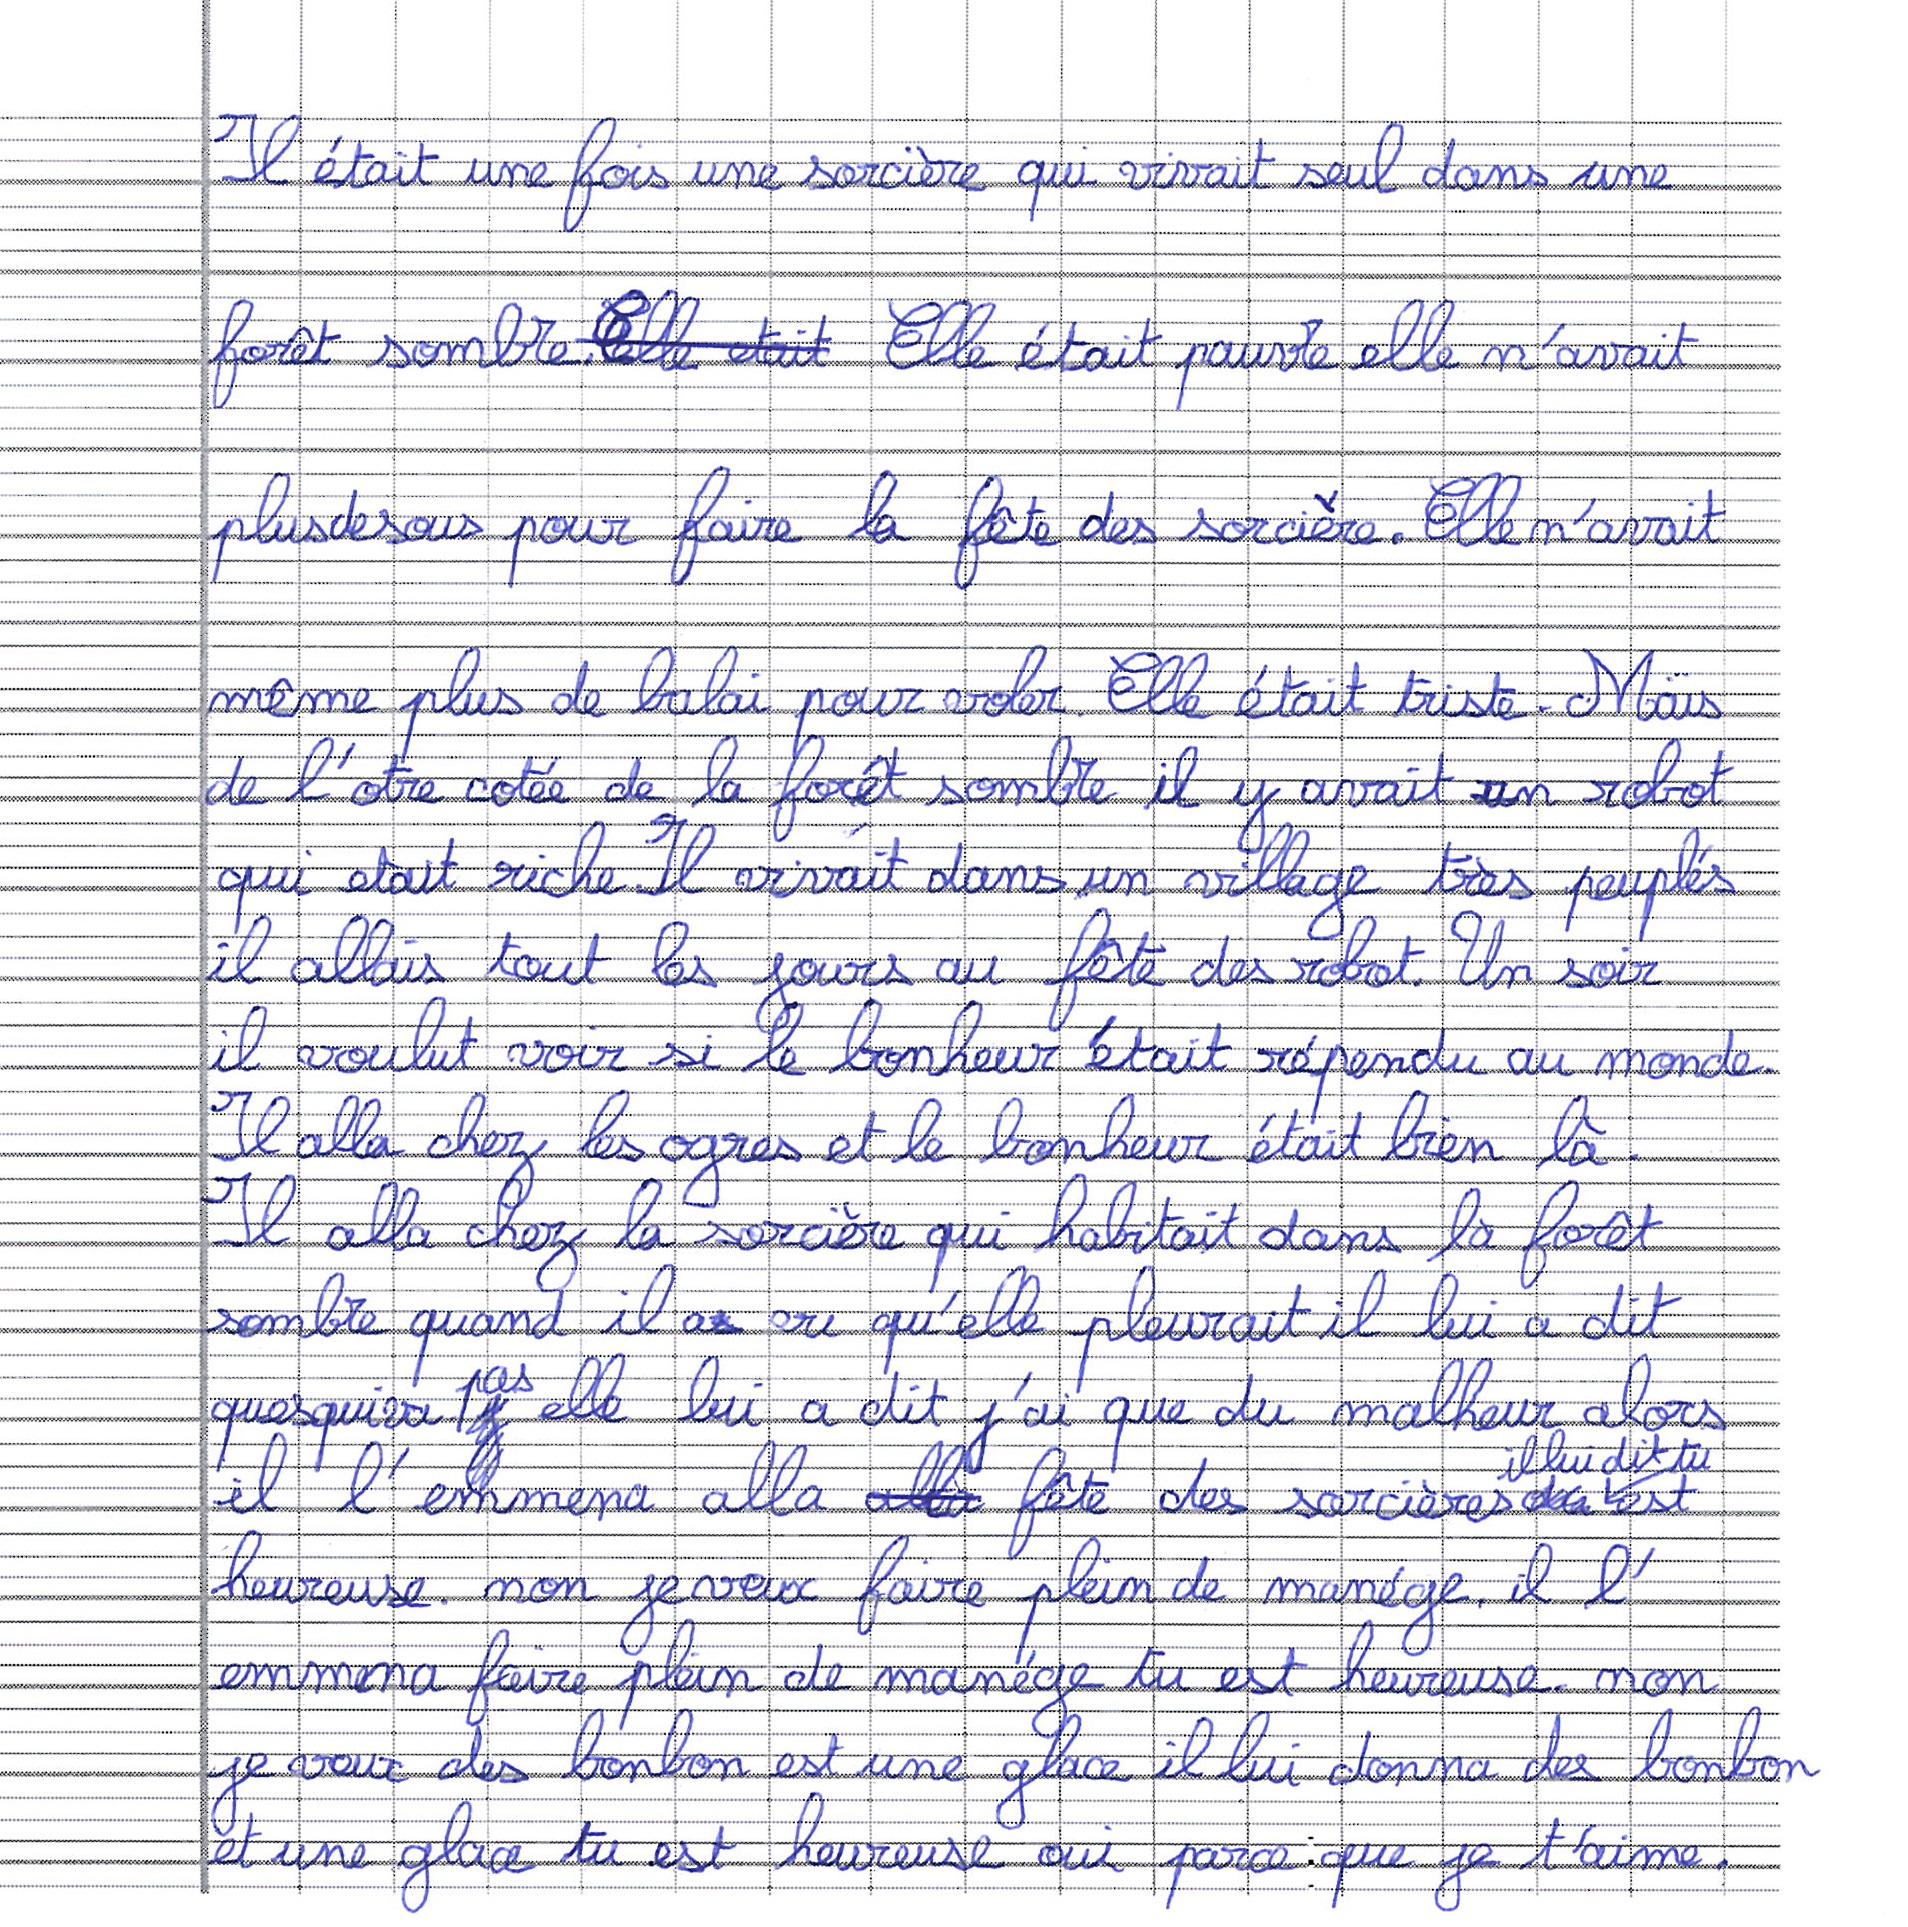 Il était une fois une sorcière qui vivait seul dans une
forêt sombre. Elle etait Elle était pauvre elle n'avait
plusdesous pour faire la fête des sorcière. Elle n'avait
même plus de balai pour voler. Elle était triste. Mais
de l'otre cotée de la forêt sombre il y avait un robot
qui etait riche. Il vivait dans un village très peuplés
il allais tout les jours au fête des robot. Un soir
il voulut voir si le bonheur était répendu au monde.
Il alla chez les ogres et le bonheur était bien là.
Il alla chez la sorcière qui habitait dans la forêt
sombre quand il a vu qu'elle pleurait il lui a dit
quesquiva pas elle lui a dit j'ai que du malheur alors
il l'emmena alla fête des sorcières il lui dit tu est
heureuse. non je veux faire plein de manége. il l'
emmena faire plein de manége tu est heureuse. non
je veux des bonbon est une glace il lui donna des bonbon
et une glace tu est heureuse oui parce que je t'aime.